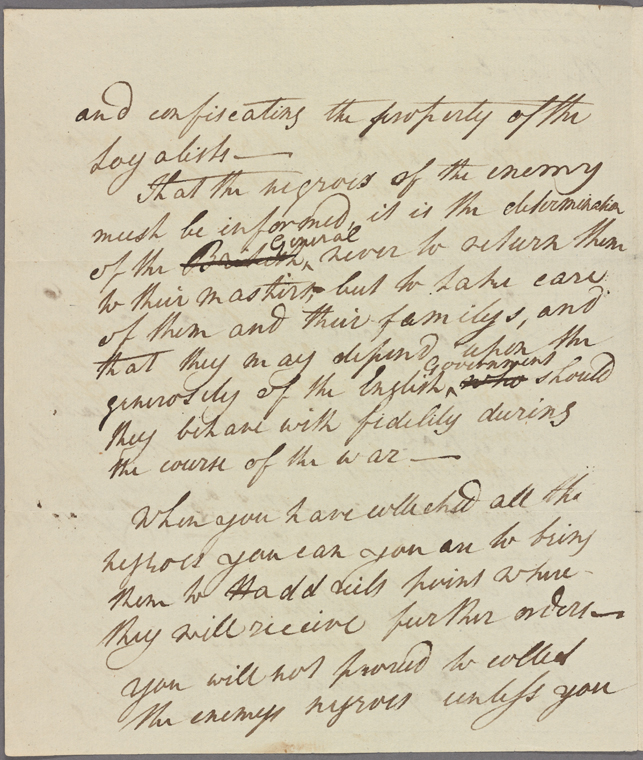 and confiscating the property of the
Loyalists —
That the negroes of the enemy
must be informed, it is the determination
of the British General, never to return them
to their masters, but to take care
of them and their familys, and
that they may depend upon the
generosity of the English Government who should
they behave with fidelity during
the course of the war —
When you have collected all the
negroes you can you are to bring
them to Haddrells point where
they will receive further orders —
You will not proceed to collect
the enemys negroes unless you